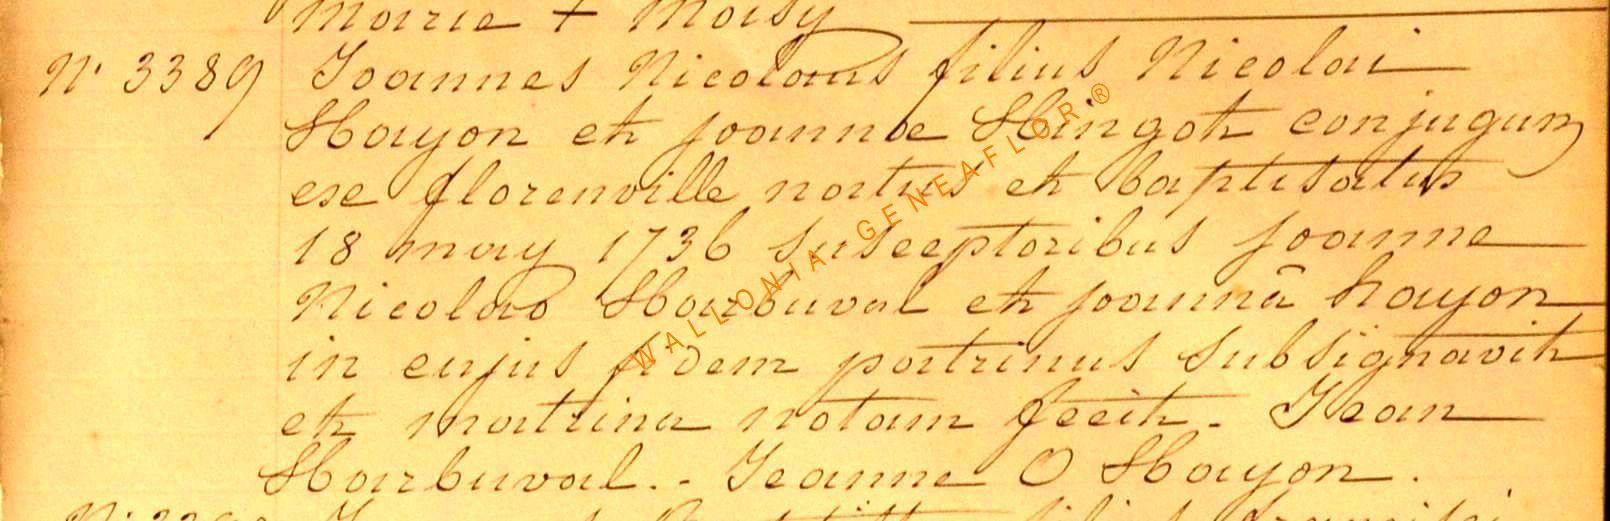 marie + moisy
N° 3389 Joannes Nicolaus filius Nicolai
Hayon et joannæ Hingot conjugum
ex florenville natus et baptisatus
18 may 1736 Susceptoribus joanne
Nicolao Harbuval et joannā hayon
in cujus fidem patrinus Subsignavit
et matrina notam fecit. Jean
Harbuval. - Jeanne O Hayon.
WALLONIA GENEAFLOR®